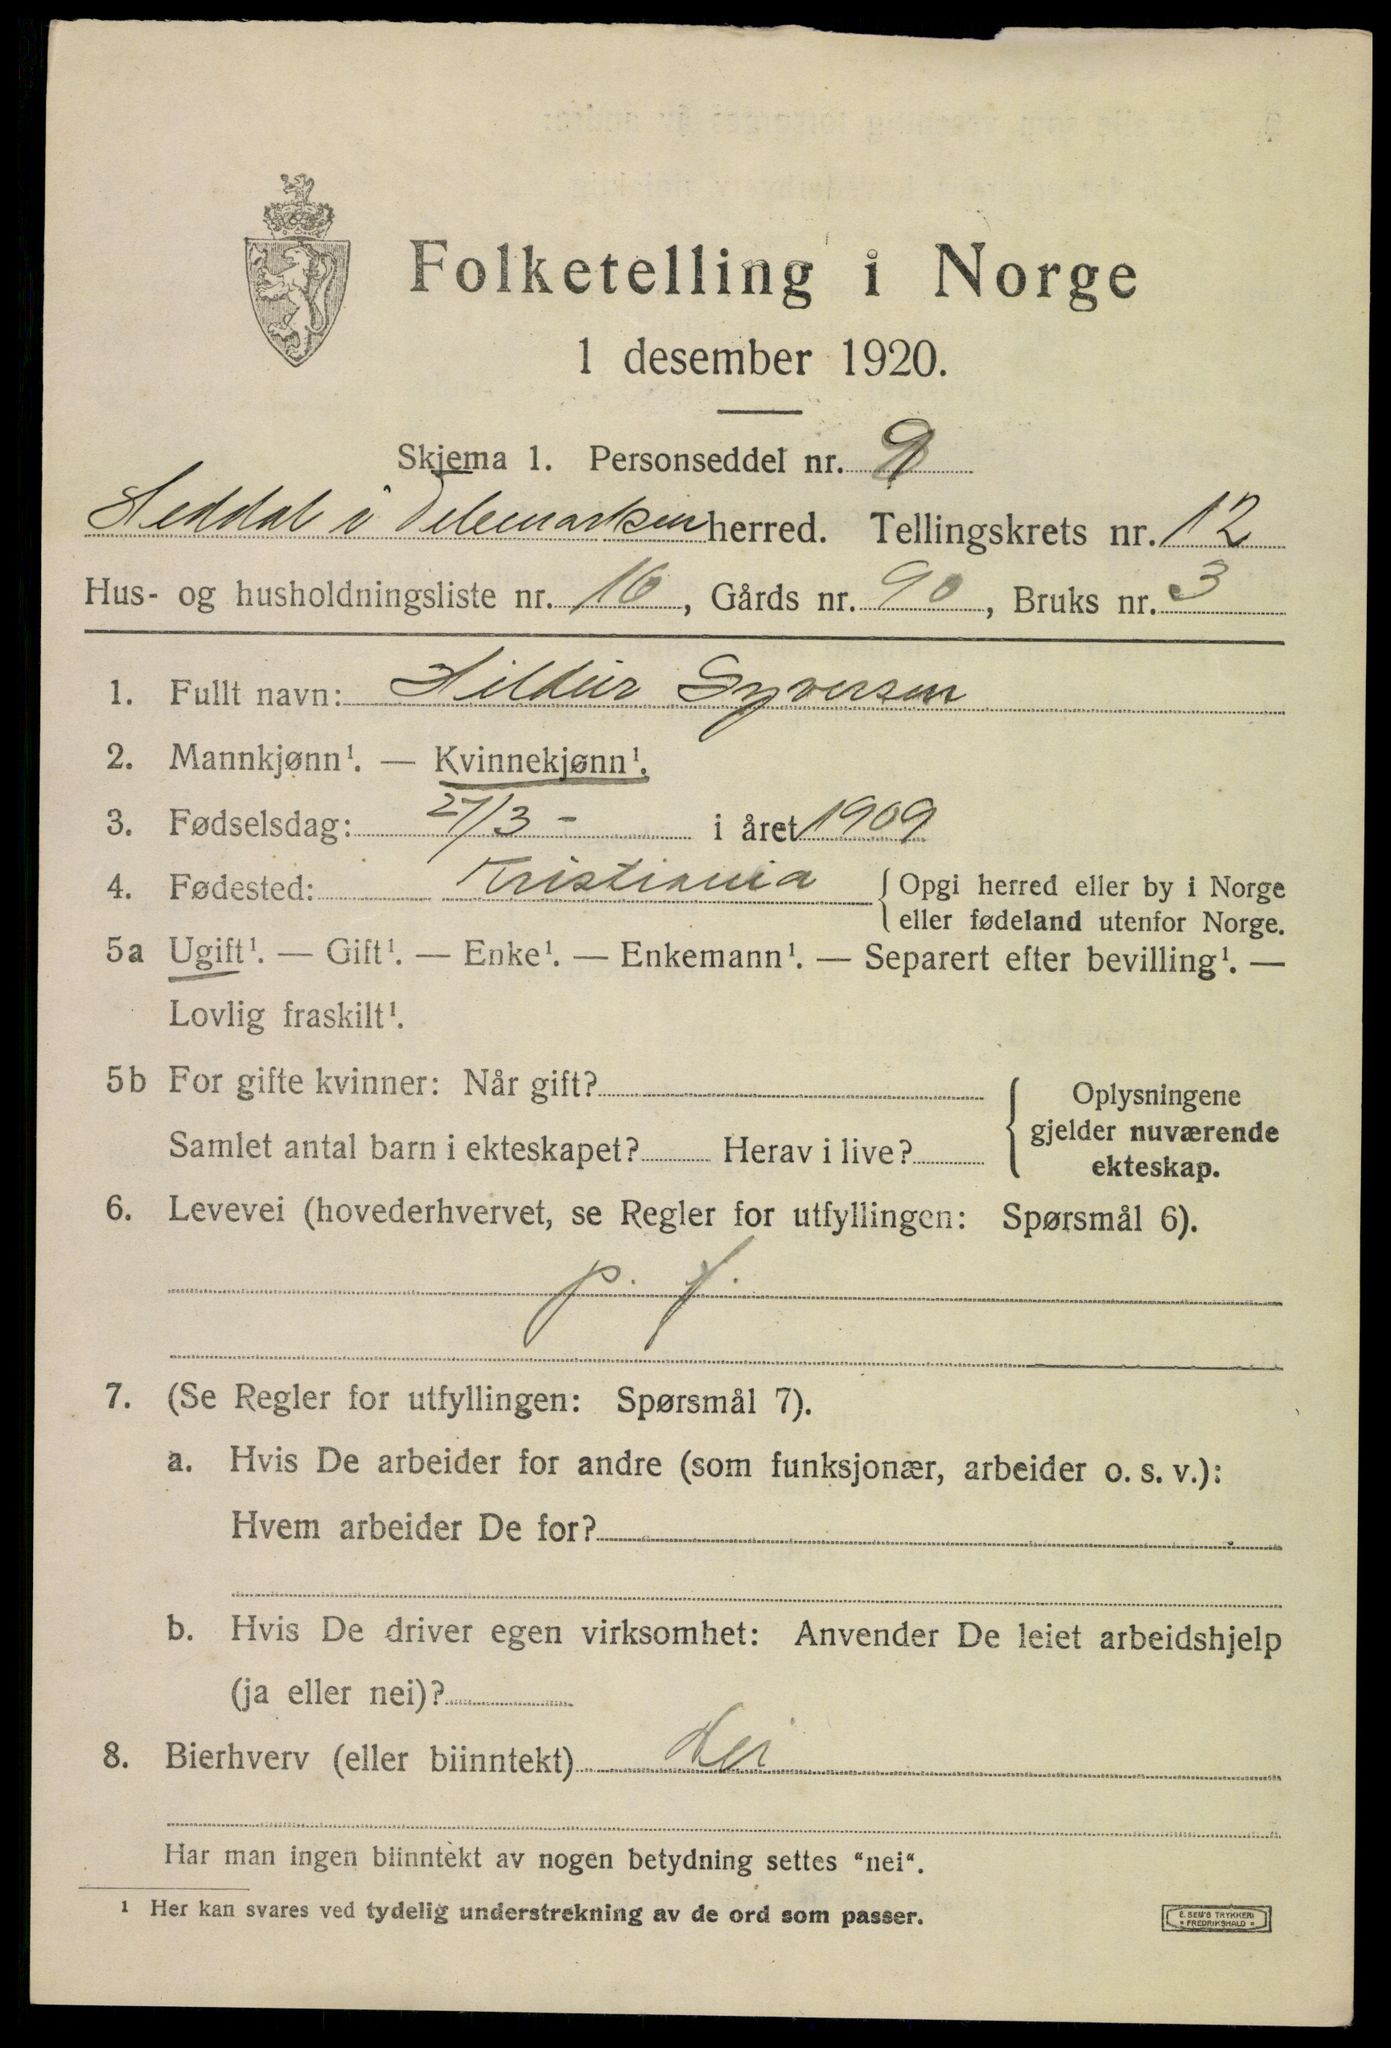 Folketelling i Norge
1 desember 1920.
Skjema 1. Personseddel nr.
Heddal i Telemarken herred. Tellingskrets nr. 12
Hus- og husholdningsliste nr. 16, Gårds nr. 90, Bruks nr. 3
1. Fullt navn: Hildur Syversen
2. Mannkjønn¹. — Kvinnekjønn¹.
3. Fødselsdag: 27/3 - i året 1909
4. Fødested: Kristiania { Opgi herred eller by i Norge
eller fødeland utenfor Norge.
5a Ugift¹. — Gift¹. — Enke¹. — Enkemann¹. — Separert efter bevilling¹. —
Lovlig fraskilt¹.
5b For gifte kvinner: Når gift?
Samlet antal barn i ekteskapet? Herav i live?
Oplysningene
gjelder nuværende
ekteskap.
6. Levevei (hovederhvervet, se Regler for utfyllingen: Spørsmål 6).
p. f.
7. (Se Regler for utfyllingen: Spørsmål 7).
a. Hvis De arbeider for andre (som funksjonær, arbeider o. s. v.):
Hvem arbeider De for?
b. Hvis De driver egen virksomhet: Anvender De leiet arbeidshjelp
(ja eller nei)?
8. Bierhverv (eller biinntekt) Nei
Har man ingen biinntekt av nogen betydning settes "nei".
¹ Her kan svares ved tydelig understrekning av de ord som passer.
E. SEM'S TRYKKERI
FREDRIKSHALD